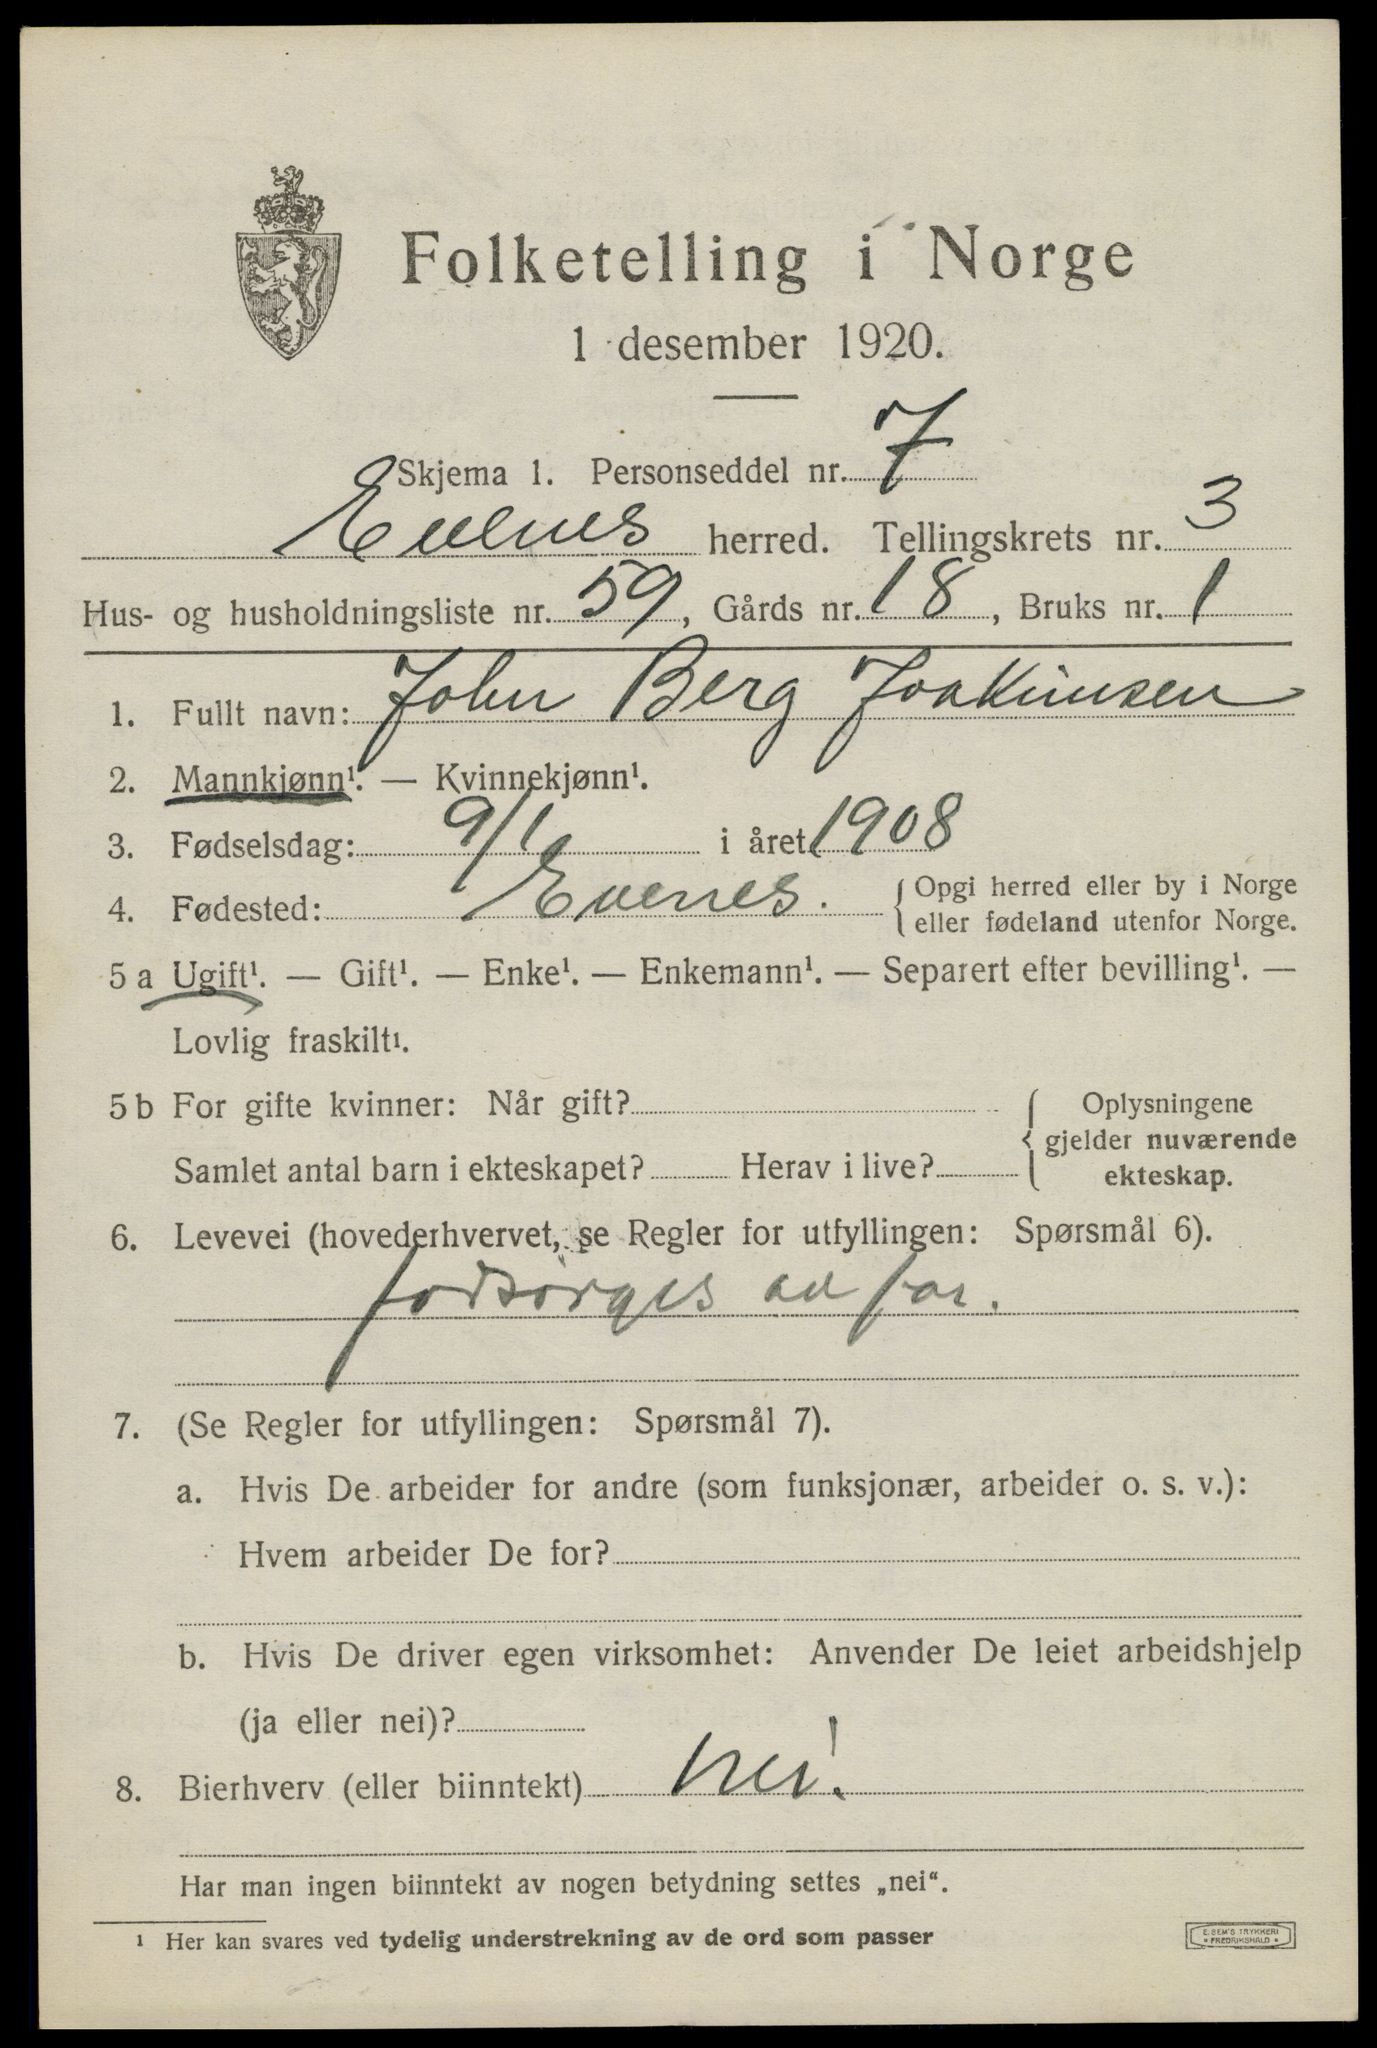 Folketelling i Norge
1 desember 1920.
Skjema 1. Personseddel nr. 7
Evenes herred. Tellingskrets nr. 3
Hus- og husholdningsliste nr. 59, Gårds nr. 18, Bruks nr. 1
1. Fullt navn: John Berg Joakimsen
2. Mannkjønn¹. — Kvinnekjønn¹.
3. Fødselsdag: 9/1 i året 1908
4. Fødested: Evenes. { Opgi herred eller by i Norge
eller fødeland utenfor Norge.
5 a Ugift¹. — Gift¹. — Enke¹. — Enkemann¹. — Separert efter bevilling¹. —
Lovlig fraskilt¹.
5 b For gifte kvinner: Når gift?
Samlet antal barn i ekteskapet? Herav i live?
{ Oplysningene
gjelder nuværende
ekteskap.
6. Levevei (hovederhvervet, se Regler for utfyllingen: Spørsmål 6).
forsørges av far.
7. (Se Regler for utfyllingen: Spørsmål 7).
a. Hvis De arbeider for andre (som funksjonær, arbeider o. s. v.):
Hvem arbeider De for?
b. Hvis De driver egen virksomhet: Anvender De leiet arbeidshjelp
(ja eller nei)?
8. Bierhverv (eller biinntekt) nei!
Har man ingen biinntekt av nogen betydning settes „nei“.
¹ Her kan svares ved tydelig understrekning av de ord som passer
E. SEM'S TRYKKERI
* FREDRIKSHALD *